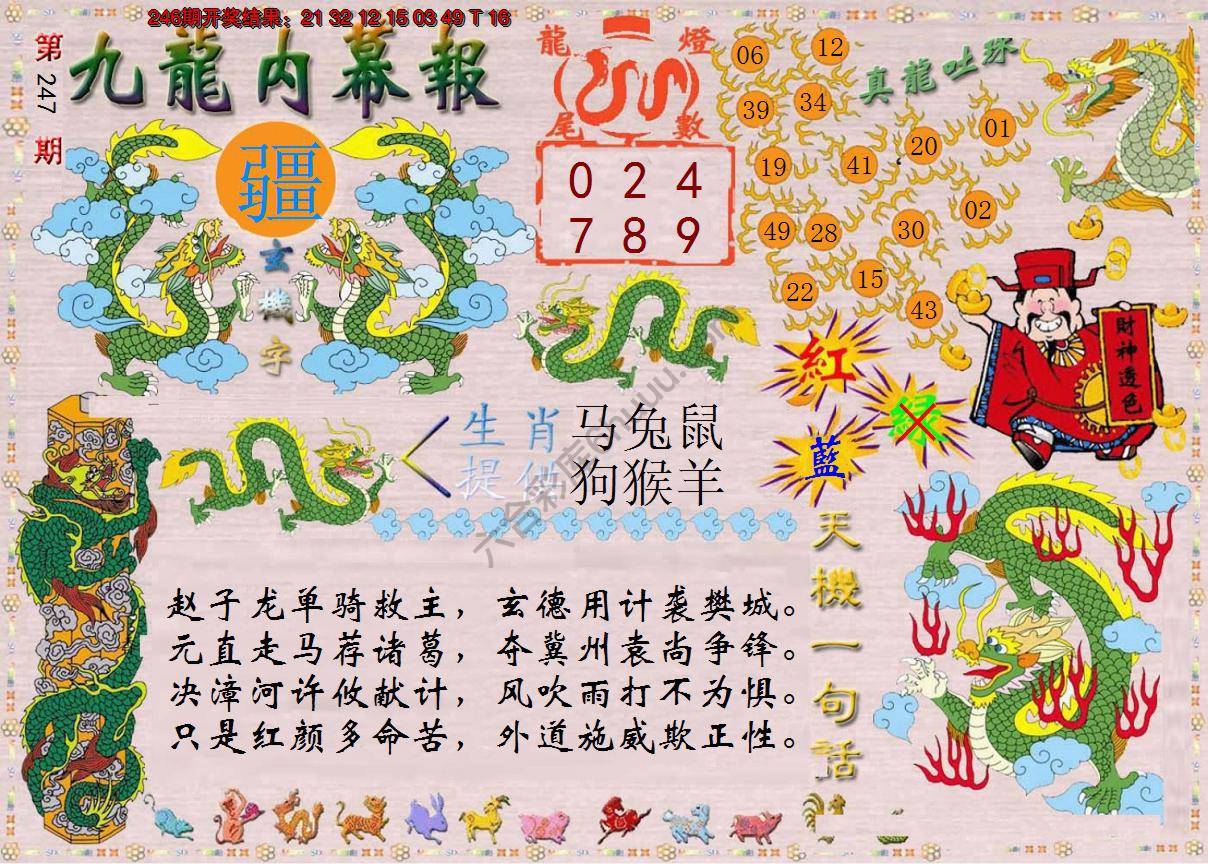 246期开奖结果：21 32 12 15 03 49 T 16
第247期
九龍内幕報
疆
玄機字
龍燈
尾數
0 2 4
7 8 9
真龍吐珠
06 12
39 34
19 41 20 01
49 28 30 02
22 15 43
財神透色
紅
绿
藍
生肖
提供
马兔鼠
狗猴羊
赵子龙单骑救主，玄德用计袭樊城。
元直走马荐诸葛，夺冀州袁尚争锋。
决漳河许攸献计，风吹雨打不为惧。
只是红颜多命苦，外道施威欺正性。
天機一句話